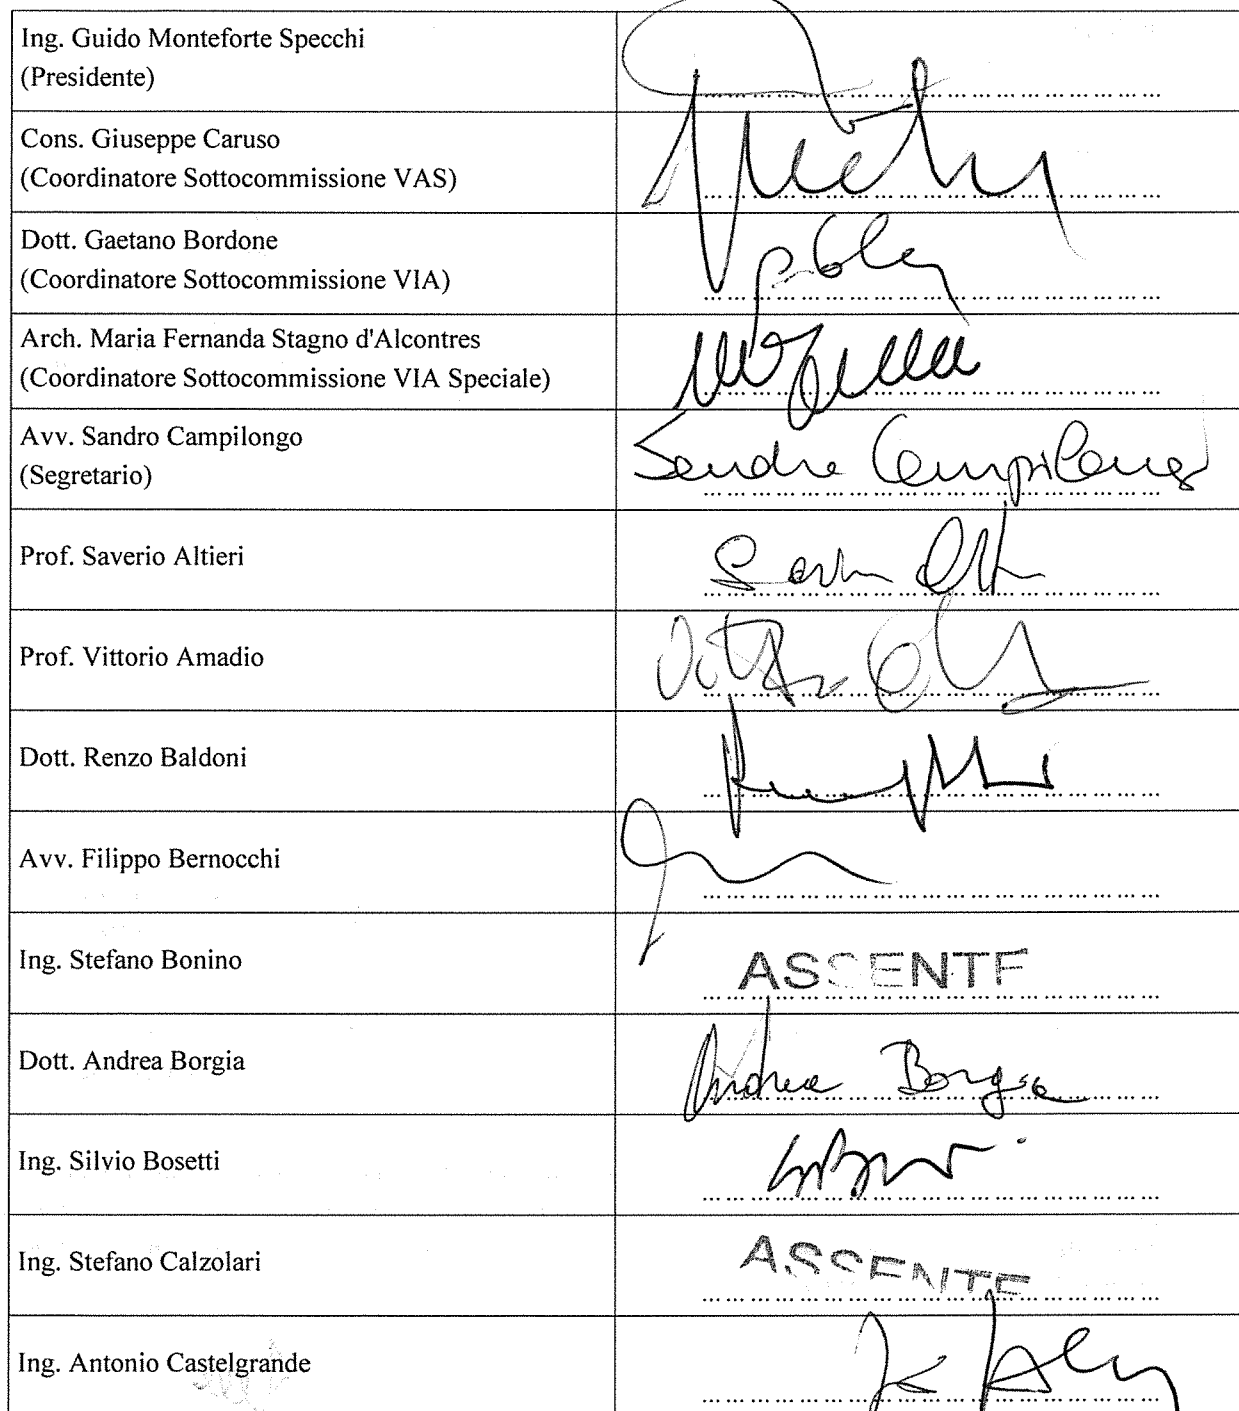 Ing. Guido Monteforte Specchi
(Presidente)
Cons. Giuseppe Caruso
(Coordinatore Sottocommissione VAS)
Dott. Gaetano Bordone
(Coordinatore Sottocommissione VIA)
Arch. Maria Fernanda Stagno d'Alcontres
(Coordinatore Sottocommissione VIA Speciale)
Avv. Sandro Campilongo
(Segretario)
Sandro Campilongo
Prof. Saverio Altieri
Prof. Vittorio Amadio
Dott. Renzo Baldoni
Avv. Filippo Bernocchi
Ing. Stefano Bonino
ASSENTE
Dott. Andrea Borgia
Andrea Borgia
Ing. Silvio Bosetti
Ing. Stefano Calzolari
ASSENTE
Ing. Antonio Castelgrande